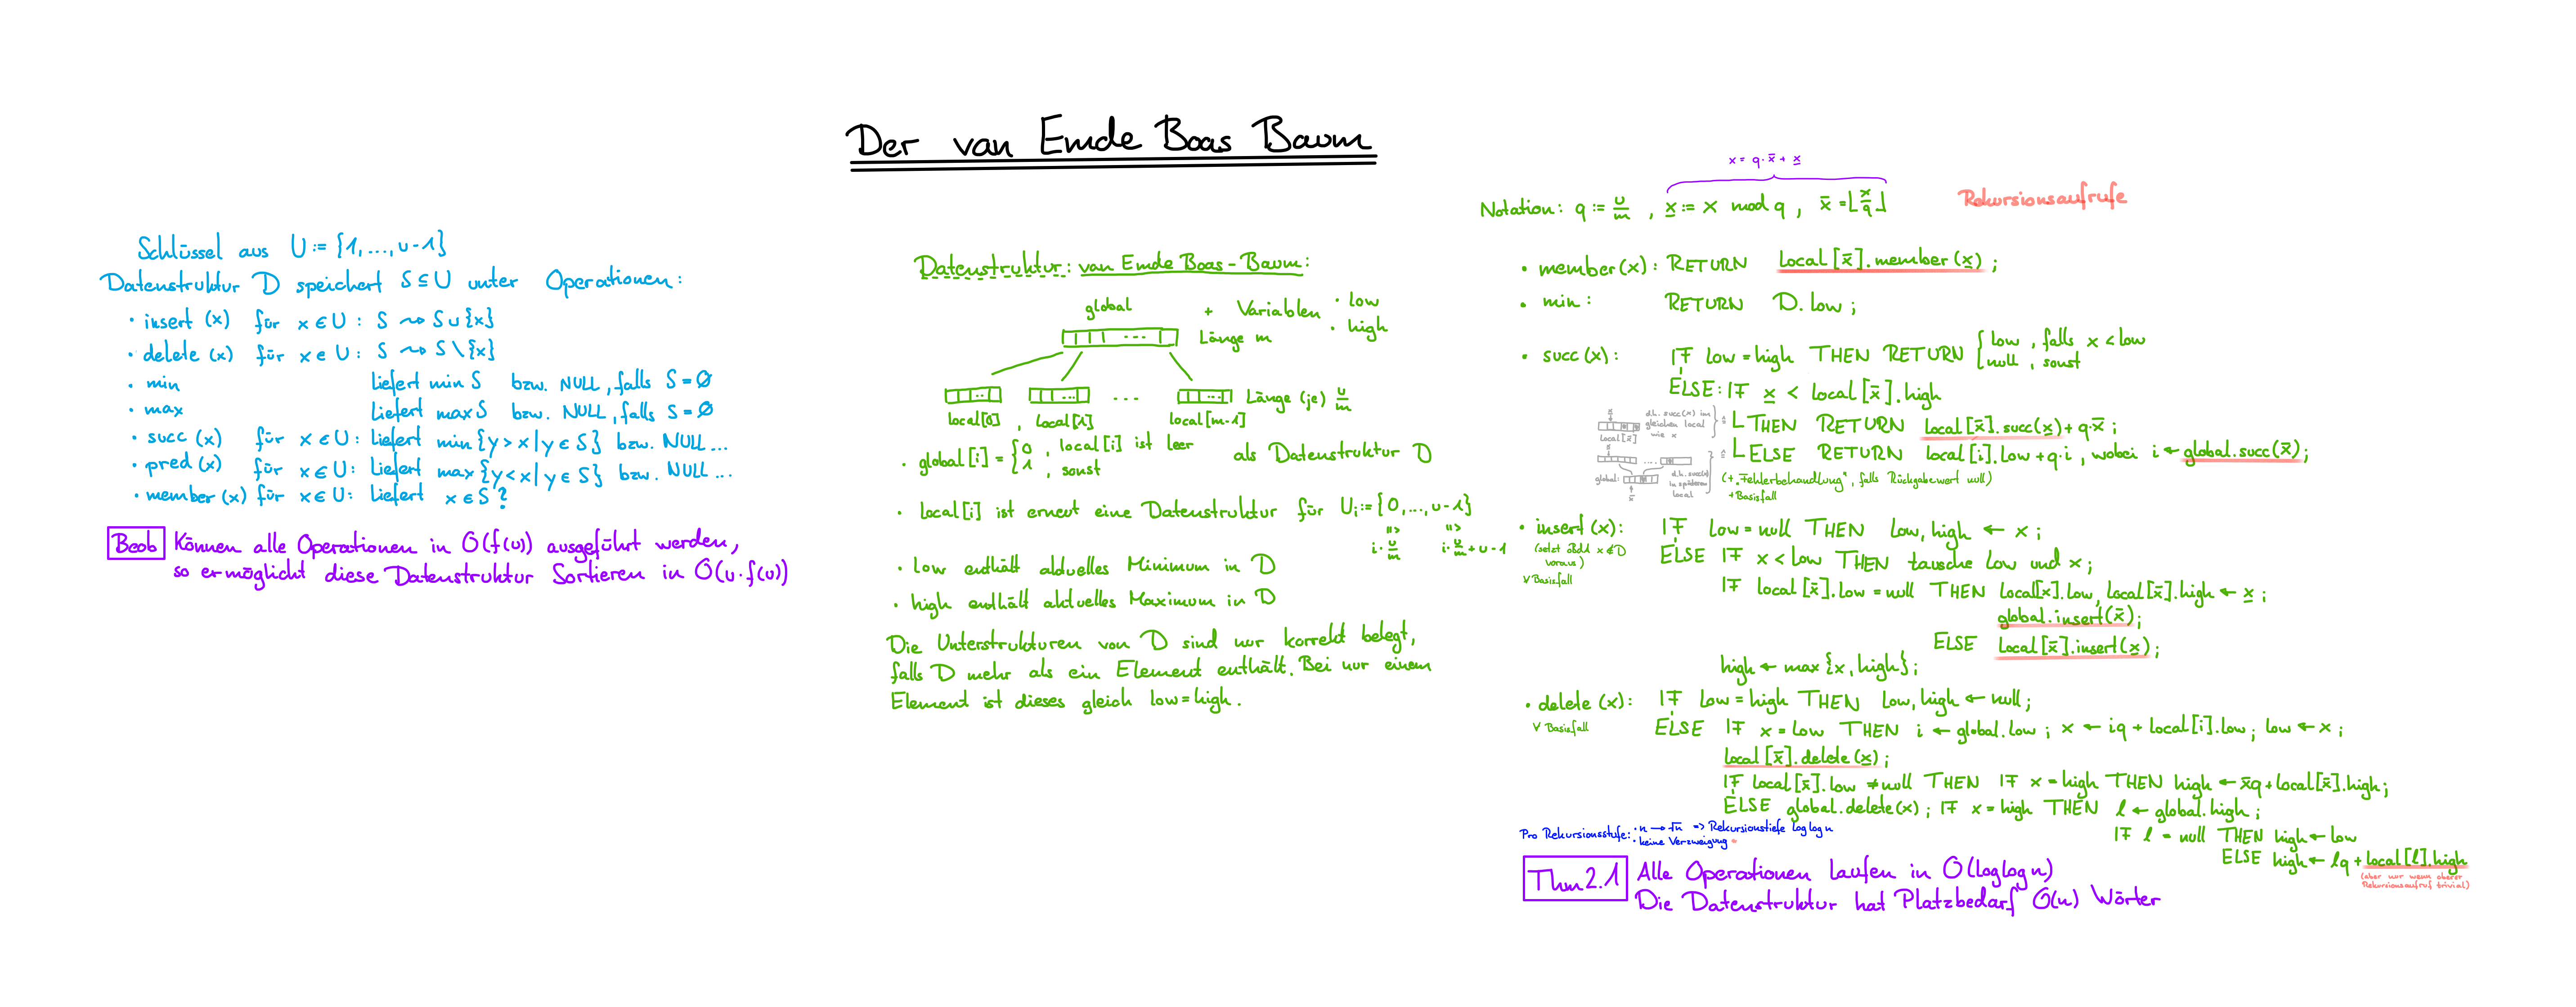 Der van Emde Boas Baum
Schlüssel aus U := {1, ..., u-1}
Datenstruktur D speichert S ⊆ U unter Operationen:
• insert (x) für x ∈ U : S ⇝ S ∪ {x}
• delete (x) für x ∈ U : S ⇝ S \ {x}
• min liefert min S bzw. NULL, falls S = ∅
• max liefert max S bzw. NULL, falls S = ∅
• succ (x) für x ∈ U : liefert min {y > x | y ∈ S} bzw. NULL ...
• pred (x) für x ∈ U : liefert max {y < x | y ∈ S} bzw. NULL ...
• member (x) für x ∈ U : liefert x ∈ S ?
Beob Können alle Operationen in O(f(u)) ausgeführt werden,
so ermöglicht diese Datenstruktur Sortieren in O(u·f(u))
Datenstruktur: van Emde Boas-Baum:
global + Variablen • low
• high
Länge m
... Länge (je) u/m
local[0], local[1] local[m-1]
• global[i] = { 0, local[i] ist leer als Datenstruktur D
1, sonst
• local[i] ist erneut eine Datenstruktur für Ui := {0, ..., u-1}
i·u/m i·u/m+u-1
• low enthält aktuelles Minimum in D
• high enthält aktuelles Maximum in D
Die Unterstrukturen von D sind nur korrekt belegt,
falls D mehr als ein Element enthält. Bei nur einem
Element ist dieses gleich low = high.
x = q·x̄ + x̲
Notation: q := u/m , x̲ := x mod q , x̄ = ⌊x/q⌋
Rekursionsaufrufe
• member (x) : RETURN local[x̄].member(x̲) ;
• min : RETURN D.low ;
• succ (x) : IF low = high THEN RETURN { low , falls x < low
null , sonst
ELSE : IF x̲ < local[x̄].high
THEN RETURN local[x̄].succ(x̲) + q·x̄ ;
d.h. succ(x) im
gleichen local
wie x
local[x̄]
ELSE RETURN local[i].low + q·i , wobei i ← global.succ(x̄) ;
global:
d.h. succ(x)
in späterem
local
(+ „Fehlerbehandlung“, falls Rückgabewert null)
+ Basisfall
• insert (x) : IF low = null THEN low, high ← x ;
(setzt obdA x ∉ D
voraus)
∨ Basisfall
ELSE IF x < low THEN tausche low und x ;
IF local[x̄].low = null THEN local[x].low, local[x̄].high ← x̲ ;
global.insert(x̄) ;
ELSE local[x̄].insert(x̲) ;
high ← max{x, high} ;
• delete (x) : IF low = high THEN low, high ← null ;
∨ Basisfall
ELSE IF x = low THEN i ← global.low ; x ← iq + local[i].low ; low ← x ;
local[x̄].delete(x̲) ;
IF local[x̄].low ≠ null THEN IF x = high THEN high ← x̄q + local[x̄].high ;
ELSE global.delete(x) ; IF x = high THEN l ← global.high ;
IF l = null THEN high ← low
ELSE high ← lq + local[l].high
(aber nur wenn oberer
Rekursionsaufruf trivial)
Pro Rekursionsstufe: • n → √n => Rekursionstiefe log log n
• keine Verzweigung
Thm 2.1 Alle Operationen laufen in O(log log n)
Die Datenstruktur hat Platzbedarf O(n) Wörter